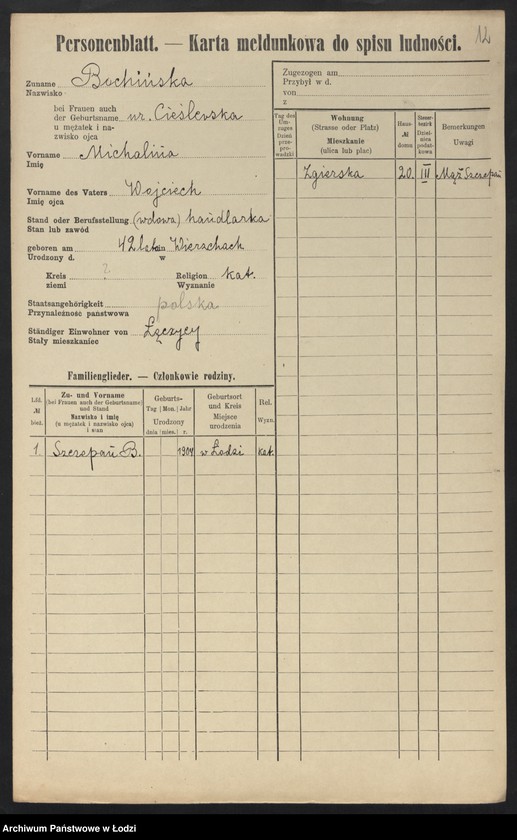 12
Personenblatt. — Karta meldunkowa do spisu ludności.
Zuname Bochińska
Nazwisko
bei Frauen auch
der Geburtsname ur. Cieślewska
u mężatek i na-
zwisko ojca
Vorname Michalina
Imię
Vorname des Vaters Wojciech
Imię ojca
Stand oder Berufsstellung (wdowa) handlarka
Stan lub zawód
geboren am 42 lata in Wierzchach
Urodzony d. w
Kreis ? Religion kat.
ziemi Wyznanie
Staatsangehörigkeit polska
Przynależność państwowa
Ständiger Einwohner von Łęczycy
Stały mieszkaniec
Zugezogen am
Przybył w d.
von
z
Tag des Um-zuges Dzień prze-pro-wadzki
Wohnung
(Strasse oder Platz)
Mieszkanie
(ulica lub plac)
Haus № domu
Bemerkungen
Uwagi
Zgierska 20. III Mąż Szczepan
Familienglieder. — Członkowie rodziny.
Lfd. № bież.
Zu- und Vorname
(bei Frauen auch der Geburtsname)
und Stand
Nazwisko i imię
(u mężatek i nazwisko ojca)
i stan
Geburts-
Tag Mon. Jahr
Urodzony
dnia mies. r.
Geburtsort
und Kreis
Miejsce
urodzenia
Rel.
Wyzn.
1. Szczepan B. 1904 w Łodzi kat.
Archiwum Państwowe w Łodzi